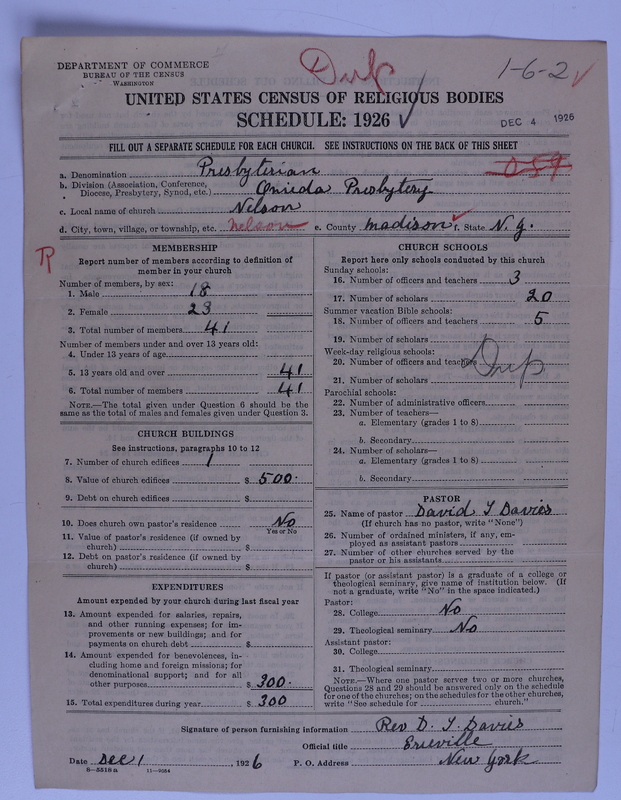 DEPARTMENT OF COMMERCE
BUREAU OF THE CENSUS
WASHINGTON
Dup
1-6-2
UNITED STATES CENSUS OF RELIGIOUS BODIES
SCHEDULE: 1926
DEC 4 1926
FILL OUT A SEPARATE SCHEDULE FOR EACH CHURCH. SEE INSTRUCTIONS ON THE BACK OF THIS SHEET
059
a. Denomination Presbyterian
b. Division (Association, Conference, Diocese, Presbytery, Synod, etc.) Onieda Presbytery
c. Local name of church Nelson
d. City, town, village, or township, etc. Nelson e. County Madison f. State N. Y.
R
MEMBERSHIP
Report number of members according to definition of
member in your church
Number of members, by sex:
1. Male 18
2. Female 23
3. Total number of members 41
Number of members under and over 13 years old:
4. Under 13 years of age
5. 13 years old and over 41
6. Total number of members 41
NOTE.—The total given under Question 6 should be the
same as the total of males and females given under Question 3.
CHURCH BUILDINGS
See instructions, paragraphs 10 to 12
7. Number of church edifices 1
8. Value of church edifices $ 500.
9. Debt on church edifices $
10. Does church own pastor's residence No
Yes or No
11. Value of pastor's residence (if owned by
church) $
12. Debt on pastor's residence (if owned by
church) $
EXPENDITURES
Amount expended by your church during last fiscal year
13. Amount expended for salaries, repairs,
and other running expenses; for im-
provements or new buildings; and for
payments on church debt $
14. Amount expended for benevolences, in-
cluding home and foreign missions; for
denominational support; and for all
other purposes $ 300.
15. Total expenditures during year $ 300
CHURCH SCHOOLS
Report here only schools conducted by this church
Sunday schools:
16. Number of officers and teachers 3
17. Number of scholars 20
Summer vacation Bible schools:
18. Number of officers and teachers 5
19. Number of scholars
Week-day religious schools:
20. Number of officers and teachers
Dup
21. Number of scholars
Parochial schools:
22. Number of administrative officers
23. Number of teachers—
a. Elementary (grades 1 to 8)
b. Secondary
24. Number of scholars—
a. Elementary (grades 1 to 8)
b. Secondary
PASTOR
25. Name of pastor David T Davies
(If church has no pastor, write "None")
26. Number of ordained ministers, if any, em-
ployed as assistant pastors
27. Number of other churches served by the
pastor or his assistants
If pastor (or assistant pastor) is a graduate of a college or
theological seminary, give name of institution below. (If
not a graduate, write "No" in the space indicated.)
Pastor:
28. College No
29. Theological seminary No
Assistant pastor:
30. College
31. Theological seminary
NOTE.—Where one pastor serves two or more churches,
Questions 28 and 29 should be answered only on the schedule
for one of the churches; on the schedules for the other churches,
write "See schedule for church."
Signature of person furnishing information Rev D. T. Davies
Official title Erieville
Date Dec 1, 1926 P. O. Address New York
8-5518a 11-9084